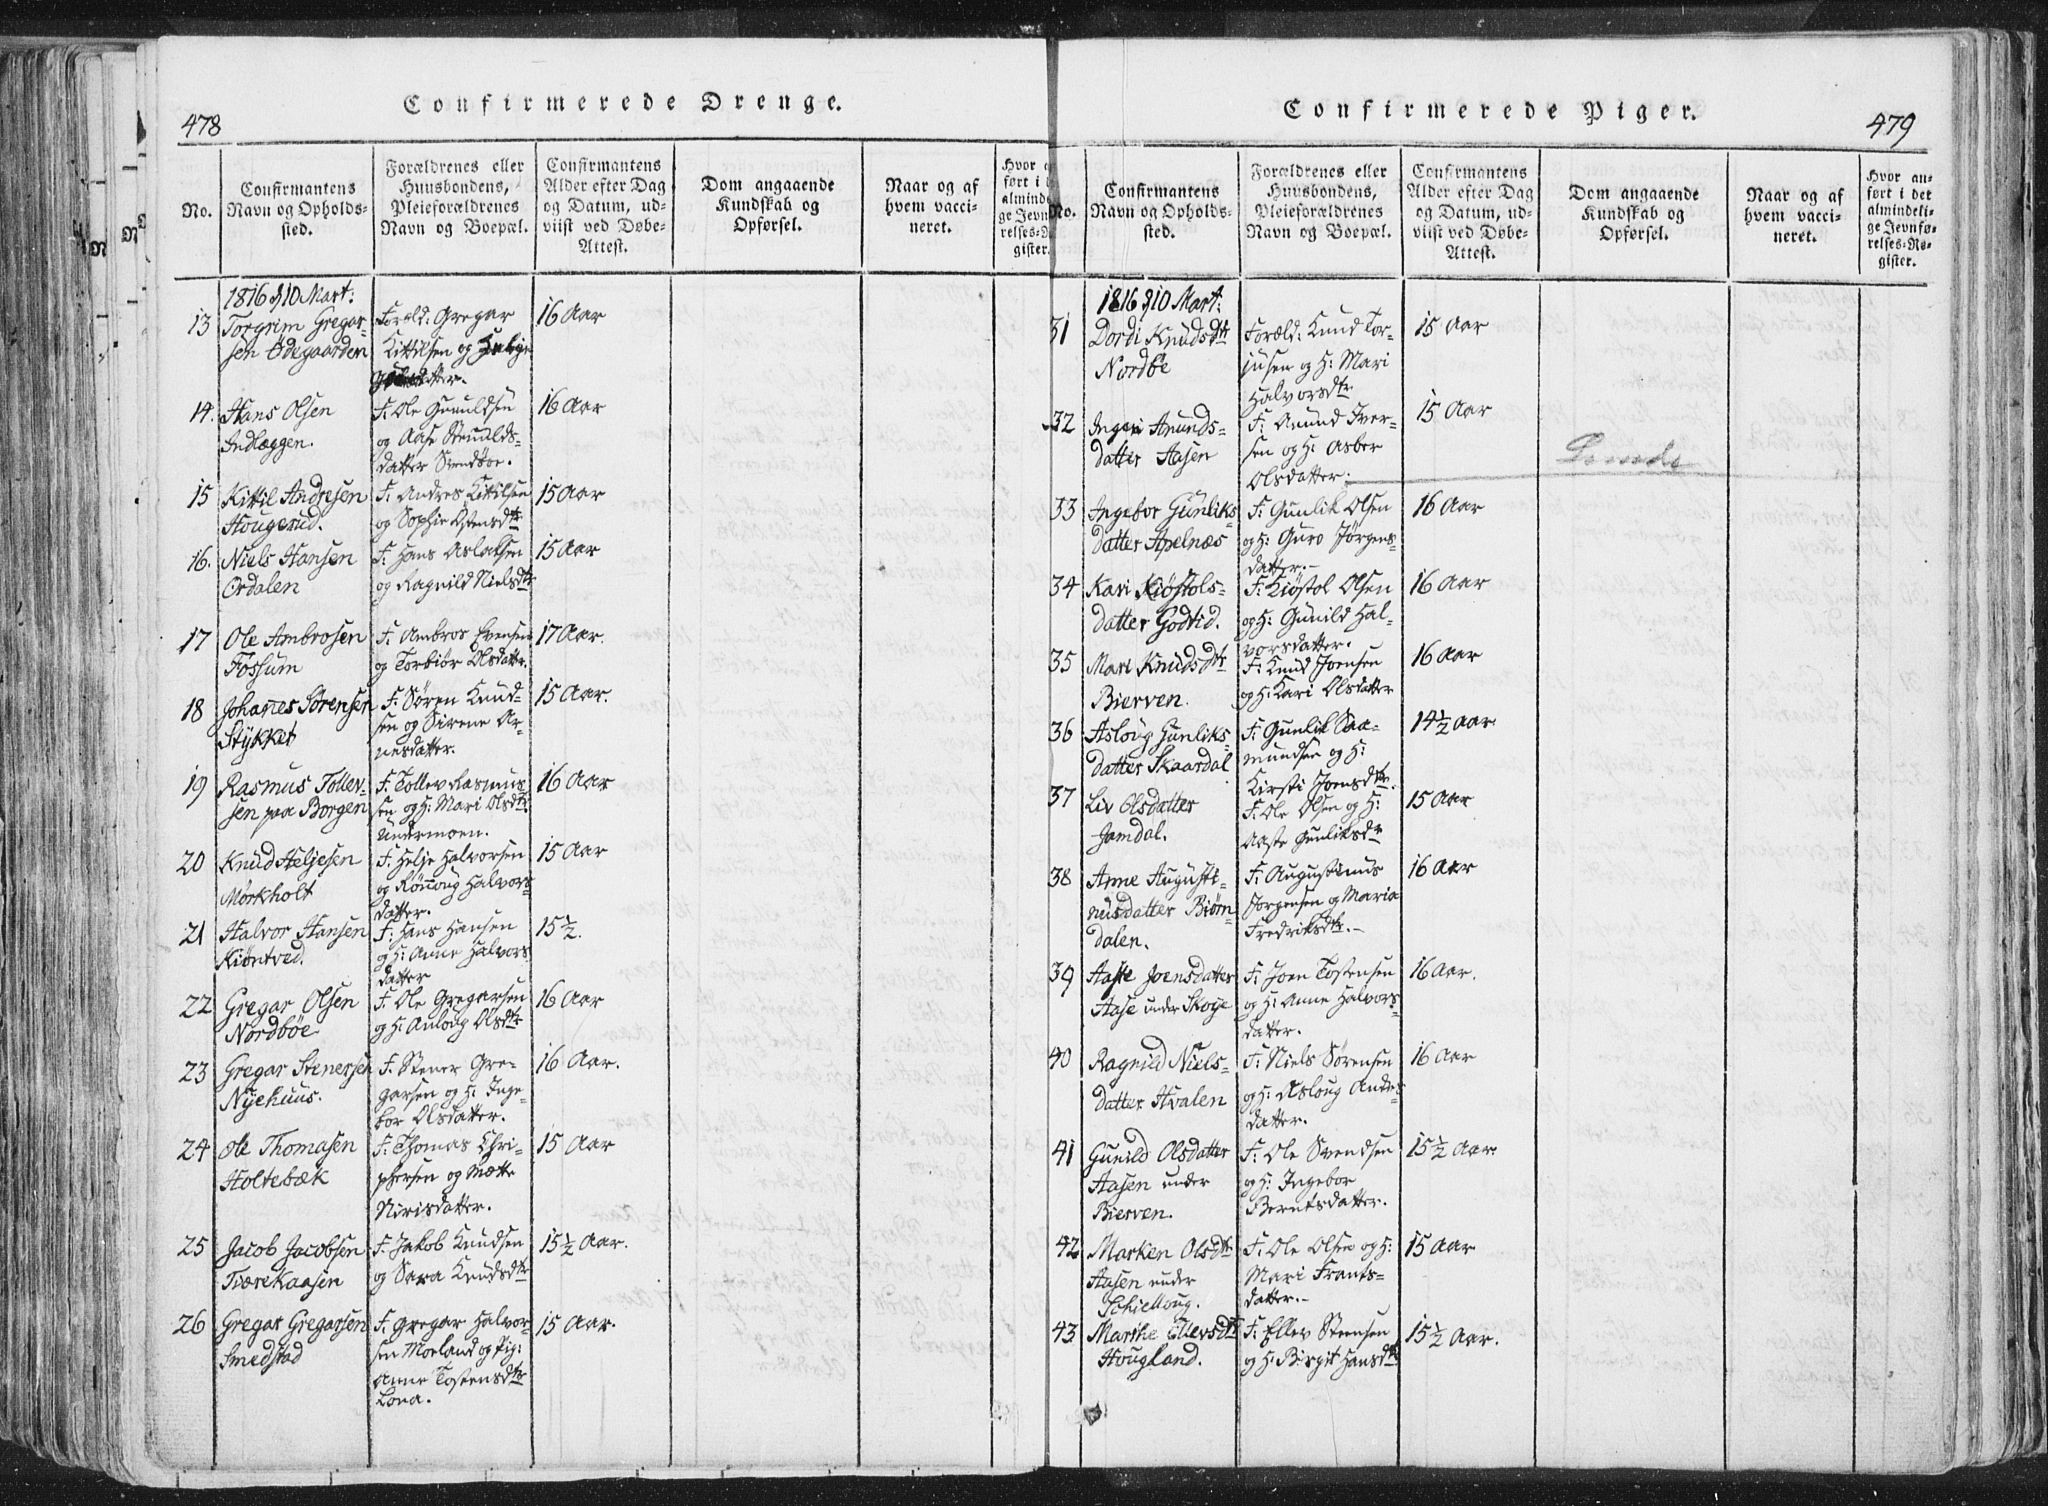 478
Confirmerede Drenge.
No.
Confirmantens
Navn og Opholds-
sted.
Forældrenes eller
Huusbondens,
Pleieforældrenes
Navn og Boepæl.
Confirmantens
Alder efter Dag
og Datum, ud-
viist ved Døbe-
Attest.
Dom angaaende
Kundskab og
Opførsel.
Naar og af
hvem vacci-
neret.
Hvor
ført i
almind
ge Jevn
relses-
gister.
1816 10 Mart:
13
Torgrim Gregar-
sen Ødegaarden
Foræld: Gregar
Kittilsen og
datter.
16 Aar
14.
Hans Olsen
Indlæggen.
F: Ole Gunuldsen
og Aase
datter
16 Aar
15
Kittil Andresen
Hougerud.
F: Andres Kittilsen
og Sophie Ostensdtr
15 Aar
16.
Niels Hansen
Ordalen
F. Hans Aslaksen
og Ragnild Nielsdtr
15 Aar
17
Ole Ambrosen
Fossum
F: Ambros Evensen
og Torbiør Olsdatter.
17 Aar.
18
Johanes Sørensen
Stykket
F: Søren Knud-
sen og Sirene Ar-
nesdatter.
15 Aar.
19
Rasmus Tollev-
sen paa Borgen
F. Tollev Rasmus-
sen og H: Mari Olsdtr
Undermoen.
16 Aar
20
Knud Heljesen
Mørkholt
F: Helje Halvorsen
og Rønnoug Halvors-
datter.
15 Aar
21
Halvor Hansen
Kiøntved.
F: Hans Hansen
og H: Anne Halvors
datter
15½.
22
Gregar Olsen
Nordbøe
F. Ole Gregarsen
og H: Anloug Olsdtr
16 Aar
23
Gregar Stenersen
Nyehuus.
F. Stener Gre-
garsen og H: Inge-
bor Olsdatter.
16 Aar.
24
Ole Thomasen
Holtebæk
F: Thomas Chri-
phersen og Mætte
Nirisdatter.
15 Aar
25
Jacob Jacobsen
Tværekaasen
F. Jakob Knudsen
og Sara Knudsdtr
15½ Aar.
26
Gregar Gregarsen
Smedstad
F. Gregar Halvor-
sen Moeland og Pig:
Anne Tostensdtr
Lona.
15 Aar.
Confirmerede Piger.
479
No.
Confirmantens
Navn og Opholds-
sted.
Forældrenes eller
Huusbondens,
Pleieforældrenes
Navn og Boepæl.
Confirmantens
Alder efter Dag
og Datum, ud-
viist ved Døbe-
Attest.
Dom angaaende
Kundskab og
Opførsel.
Naar og af
hvem vacci-
neret.
Hvor an-
ført i det
almindeli-
ge Jevnfø-
relses-Re-
gister.
1816 10 Mart:
31
Dordi Knudsdtr
Nordbe
Foræld: Knud Tor-
jusen og H: Mari
Halvorsdtr
15 Aar
32
Ingeri Anunds-
datter Aasen
F: Anund Iver-
sen og H: Asber
Olsdatter.
15 Aar
Lunde
33
Ingebor Gunliks-
datter Apelnæs
F: Gunlik Olsen
og H: Guro Jørgens-
datter.-
16 Aar
34
Kari Kiøstols-
datter Godtid.
F: Kiøstol Olsen
og H: Gunild Hal-
vorsdatter.
16 Aar
35
Mari Knudsdtr
Bierven.
F: Knud Joensen
og H: Kari Olsdatter
16 Aar
36
Asloug Gunliks-
datter Skaardal
F: Gunlik Saa-
mundsen og H:
Kirsti Joensdtr.
14½ Aar.
37
Liv Olsdatter
Jamdal.
F: Ole Olsen og H:
Aaste Gunliksdtr
15 Aar
38
Anne Augusti-
nusdatter Biørn-
dalen.
F: Augustinus
Jørgensen og Maria
Fredriksdtr.-
16 Aar
39
Aaste Joensdatter
Aase under Skoge
F: Joen Tostensen
og H: Anne Halvors-
datter.
16 Aar.
40
Ragnild Niels-
datter Hvalen
F: Niels Sørensen
og H: Asloug Andres-
datter.
16 Aar
41
Gunild Olsdatter
Aasen under
Bierven.
F: Ole Svendsen
og H: Ingebor
Berntsdatter.
15½ Aar
42
Marken Olsdtr
Aasen under
Schielloug.
F: Ole Olsen og H:
Mari Frants-
datter.-
15 Aar
43
Marthe Ellevsdtr
Hougland.
F: Ellev Steensen
og H: Birgit Hansdtr
15½ Aar.